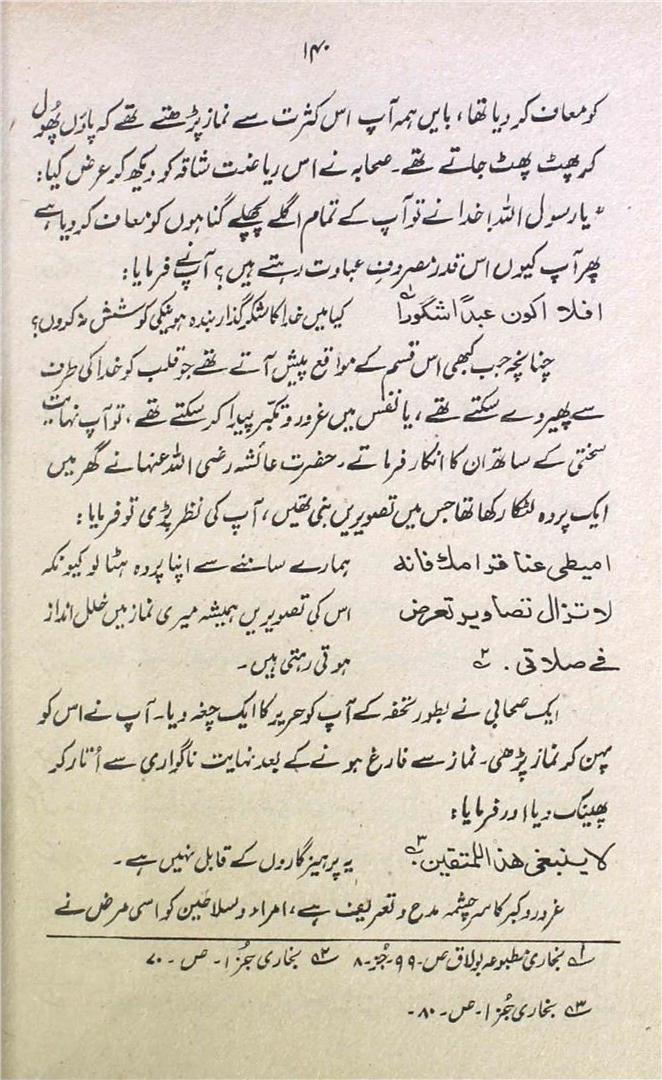 ۱۴۰
کو معاف کر دیا تھا، بایں ہمہ آپ اس کثرت سے نماز پڑھتے تھے کہ پاؤں پھول
کر پھٹ پھٹ جاتے تھے۔ صحابہ نے اس ریاضت شاقہ کو دیکھ کر عرض کیا:
"یا رسول اللہ! خدا نے تو آپ کے تمام اگلے پچھلے گناہوں کو معاف کر دیا ہے
پھر آپ کیوں اس قدر مصروفِ عبادت رہتے ہیں؟ آپ نے فرمایا:
افلا اکون عبدًا شکورا ۱ کیا میں خدا کا شکر گذار بندہ ہونیکی کوشش نہ کروں؟
چنانچہ جب کبھی اس قسم کے مواقع پیش آتے تھے جو قلب کو خدا کی طرف
سے پھیر دے سکتے تھے، یا نفس میں غرور و تکبر پیدا کر سکتے تھے، تو آپ نہایت
سختی کے ساتھ ان کا انکار فرماتے۔ حضرت عائشہ رضی اللہ عنہا نے گھر میں
ایک پردہ لٹکا رکھا تھا جس میں تصویریں بنی تھیں، آپ کی نظر پڑی تو فرمایا:
امیطی عنا قرامك فانه ہمارے سامنے سے اپنا پردہ ہٹا لو کیونکہ
لا تزال تصاویر تعرض اس کی تصویریں ہمیشہ میری نماز میں خلل انداز
فے صلاتی. ۲ ہوتی رہتی ہیں۔
ایک صحابی نے بطور تحفہ کے آپ کو حریر کا ایک چغہ دیا۔ آپ نے اس کو
پہن کر نماز پڑھی۔ نماز سے فارغ ہونے کے بعد نہایت ناگواری سے اُتار کر
پھینک دیا اور فرمایا:
لا ینبغی هذا للمتقین: ۳ یہ پرہیزگاروں کے قابل نہیں ہے۔
غرور و کبر کا سرچشمہ مدح و تعریف ہے، امراء و سلاطین کو اسی مرض نے
۱ بخاری مطبوعہ بولاق ص۔ ۹۹۔ جُز۔ ۸ ۲ بخاری جُز ۱۔ ص۔ ۷۰
۳ بخاری جُز ۱۔ ص۔ ۸۰۔